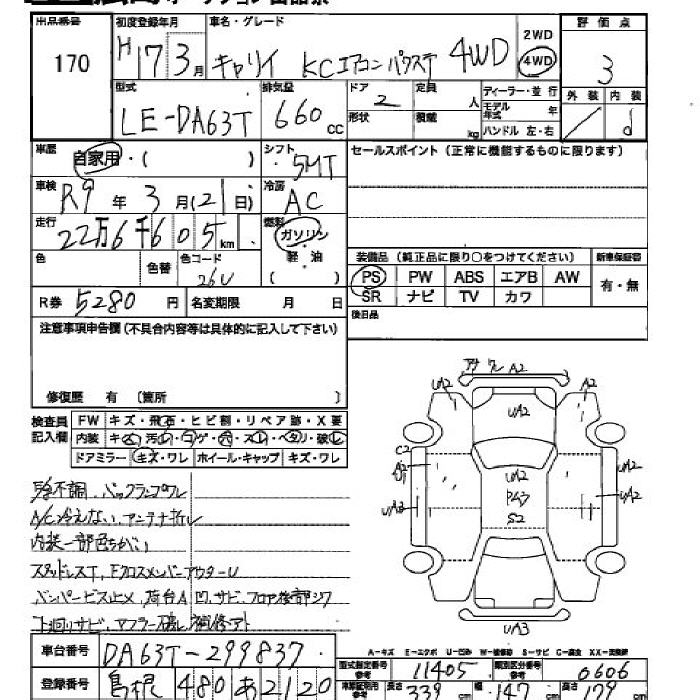 出品番号 初度登録年月 車名・グレード 2WD 評価点
170 H17 3月 キャリイ KCエアコンパワステ 4WD 4WD 3
型式 排気量 ドア 定員 ディーラー・並行 外装 内装
LE-DA63T 660cc 2 人 モデル年式 年 d
形状 積載 kg ハンドル 左・右
車歴 自家用・( ) シフト 5MT セールスポイント (正常に機能するものに限ります)
車検 R9年3月(21日) 冷房 AC
走行 22万6千605km 燃料 ガソリン 軽・油 ( )
色 色替 色コード 26U 装備品 (純正品に限り○をつけてください) 新車保証書
PS PW ABS エアB AW 有・無
R券 5280円 名変期限 月 日 SR ナビ TV カワ
後日品
注意事項申告欄 (不具合内容等は具体的に記入して下さい)
修復歴 有 〔箇所 〕
検査員記入欄 FW キズ・飛石・ヒビ割・リペア跡・X要
内装 キズ・汚れ・コゲ・穴・スレ・ヘタリ・破レ
ドアミラー キズ・ワレ ホイール・キャップ キズ・ワレ
A2
UA2 A2
UA2
C2
A2 UA2 UA2
UA3 UA2
PA3
S2
UA3
不調、バックランプワレ
A/C冷えない、アンテナ折レ
内装一部色ちがい
スタッドレスT、FクロスメンバーアウターU
バンパービス止メ、荷台A凹、サビ、フロア後部シワ
下廻りサビ、マフラー破レ補修アト
A－キズ E－エクボ U－凹み W－補修跡 S－サビ C－腐食 XX－交換済
車台番号 DA63T-299837 型式指定番号 11405 類別区分番号 0606
登録番号 島根 480 あ 2120 長さ 339cm 幅 147cm 高さ 179cm